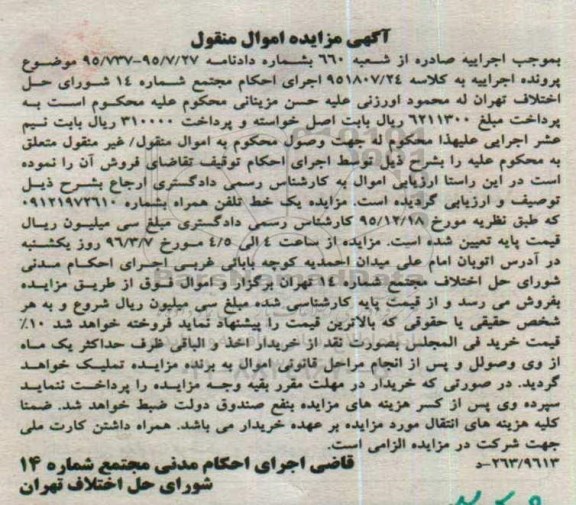 آگهی مزایده اموال منقول
بموجب اجراییه صادره از شعبه ۶۶۰ بشماره دادنامه ۹۵/۷/۲۷-۹۵/۷۳۷ موضوع
پرونده اجراییه به کلاسه ۹۵۱۸۰۷/۲۴ اجرای احکام مجتمع شماره ۱۴ شورای حل
اختلاف تهران له محمود اورزنی علیه حسن مزینانی محکوم علیه محکوم است به
پرداخت مبلغ ۶۲۱۱۳۰۰ ریال بابت اصل خواسته و پرداخت ۳۱۰۰۰۰ ریال بابت نیم
عشر اجرایی علیهذا محکوم له جهت وصول محکوم به اموال منقول/ غیر منقول متعلق
به محکوم علیه را بشرح ذیل توسط اجرای احکام توقیف تقاضای فروش آن را نموده
است در این راستا ارزیابی اموال به کارشناس رسمی دادگستری ارجاع بشرح ذیل
توصیف و ارزیابی گردیده است. مزایده یک خط تلفن همراه بشماره ۰۹۱۲۱۹۷۲۶۱۰
که طبق نظریه مورخ ۹۵/۱۲/۱۸ کارشناس رسمی دادگستری مبلغ سی میلیون ریال
قیمت پایه تعیین شده است. مزایده از ساعت ۴ الی ۴/۵ مورخ ۹۶/۳/۷ روز یکشنبه
در آدرس اتوبان امام علی میدان احمدیه کوچه بابائی غربی اجرای احکام مدنی
شورای حل اختلاف مجتمع شماره ۱۴ تهران برگزار و اموال فوق از طریق مزایده
بفروش می رسد و از قیمت پایه کارشناسی شده مبلغ سی میلیون ریال شروع و به هر
شخص حقیقی یا حقوقی که بالاترین قیمت را پیشنهاد نماید فروخته خواهد شد ۱۰٪
قیمت خرید فی المجلس بصورت نقد از خریدار اخذ و الباقی ظرف حداکثر یک ماه
از وی وصولل و پس از انجام مراحل قانونی اموال به برنده مزایده تملیک خواهد
گردید. در صورتی که خریدار در مهلت مقرر بقیه وجه مزایده را پرداخت ننماید
سپرده وی پس از کسر هزینه های مزایده بنفع صندوق دولت ضبط خواهد شد. ضمنا
کلیه هزینه های انتقال مورد مزایده بر عهده خریدار می باشد. همراه داشتن کارت ملی
جهت شرکت در مزایده الزامی است.
۲۶۳/۹۶۱۳-د
قاضی اجرای احکام مدنی مجتمع شماره ۱۴
شورای حل اختلاف تهران